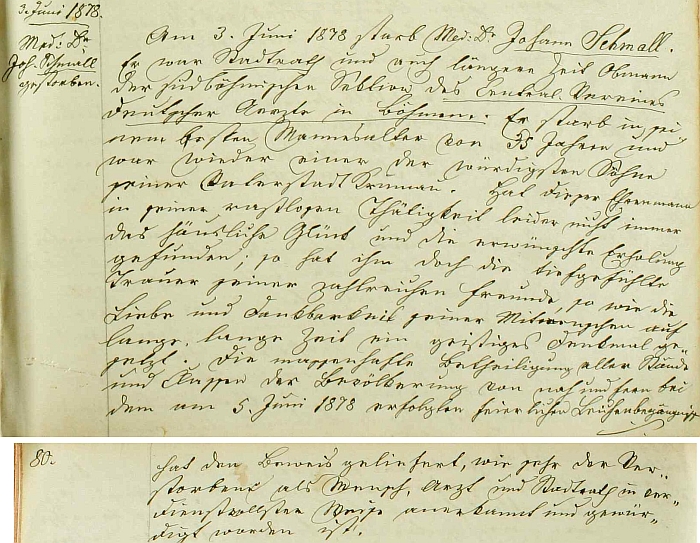 3. Juni 1878.
Med: Dr
Joh. Schmall
gestorben.
Am 3. Juni 1878 starb Med: Dr Johann Schmall.
Er war Stadtrath und auch längere Zeit Obmann
der südböhmischen Sektion des Central-Vereines
deutscher Aerzte in Böhmen. Er starb in sei
nem besten Mannesalter von 35 Jahren und
war wieder einer der würdigsten Söhne
seiner Vaterstadt Krumau. Hat dieser Ehrenmann
in seiner rastlosen Thätigkeit leider nicht immer
das häusliche Glück und die erwünschte Erholung
gefunden; so hat ihm doch die tiefgefühlte
Trauer seiner zahlreichen Freunde, so wie die
Liebe und Dankbarkeit seiner Mitmenschen auf
lange, lange Zeit ein geistiges Denkmal ge-
setzt. Die massenhafte Betheiligung aller Stände
und Classen der Bevölkerung von nah und fern bei
dem am 5. Juni 1878 erfolgten feierlichen Leichenbegängniße
80.
hat den Beweis geliefert, wie sehr der Ver-
storbene als Mensch, Arzt und Stadtrath in ver-
dienstvollster Weise anerkannt und gewür-
digt worden ist.